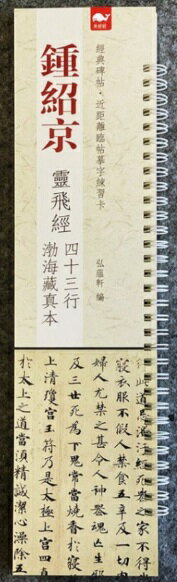 經典碑帖·近距離臨帖摹字練習卡
弘蘊軒 編
鍾紹京
靈飛經
四十三行
渤海藏真本
行此道忌淹污經死喪之家不得
寢衣服不假人禁食五辛及一切
婦人尤禁之甚令人神喪魂亡生邪
及三世死為下鬼常當燒香於寢
上清瓊宮玉符乃是太極上宮四真
於太上之道當須精誠潔心澡除五